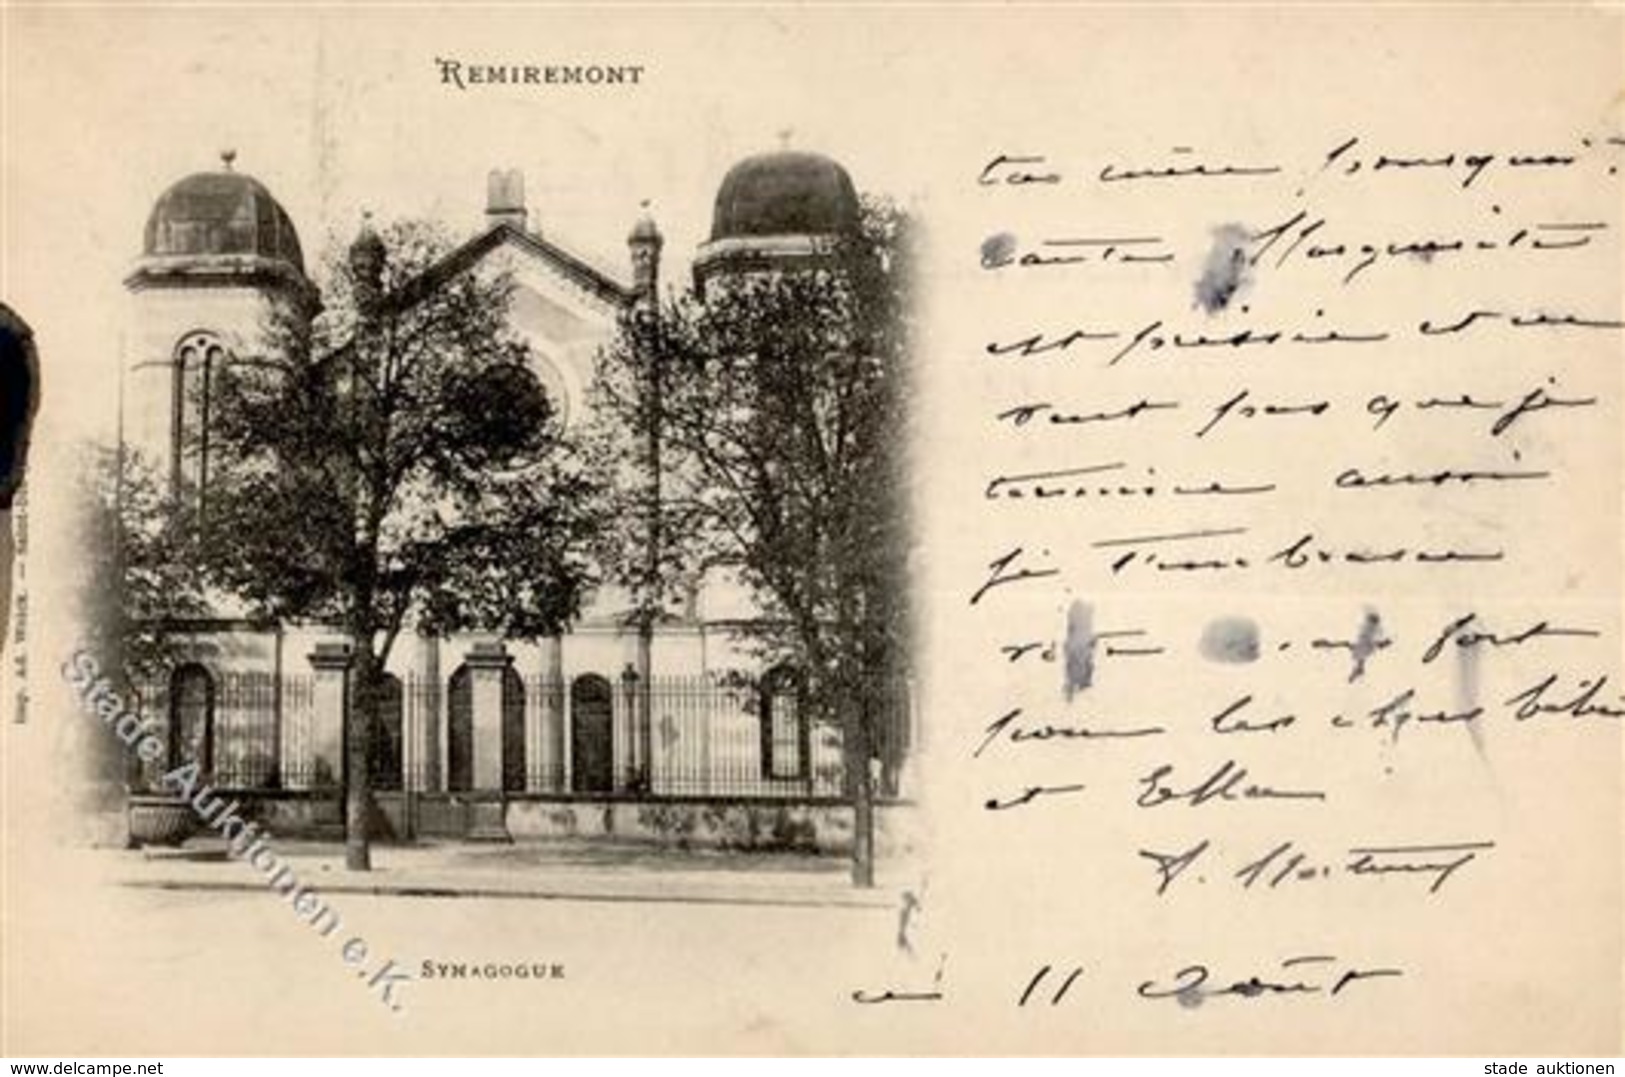 REMIREMONT
ta mère pourquoi.
tante Marguerite
est pressée et ne
veut pas que je
termine aussi
je t'embrasse
fort
pour les chers bébés
et
ce 11 Août
SYNAGOGUE
Imp. Ad. Weick. — Saint-
Stade Auktionen e.K.
www.delcampe.net
stade auktionen